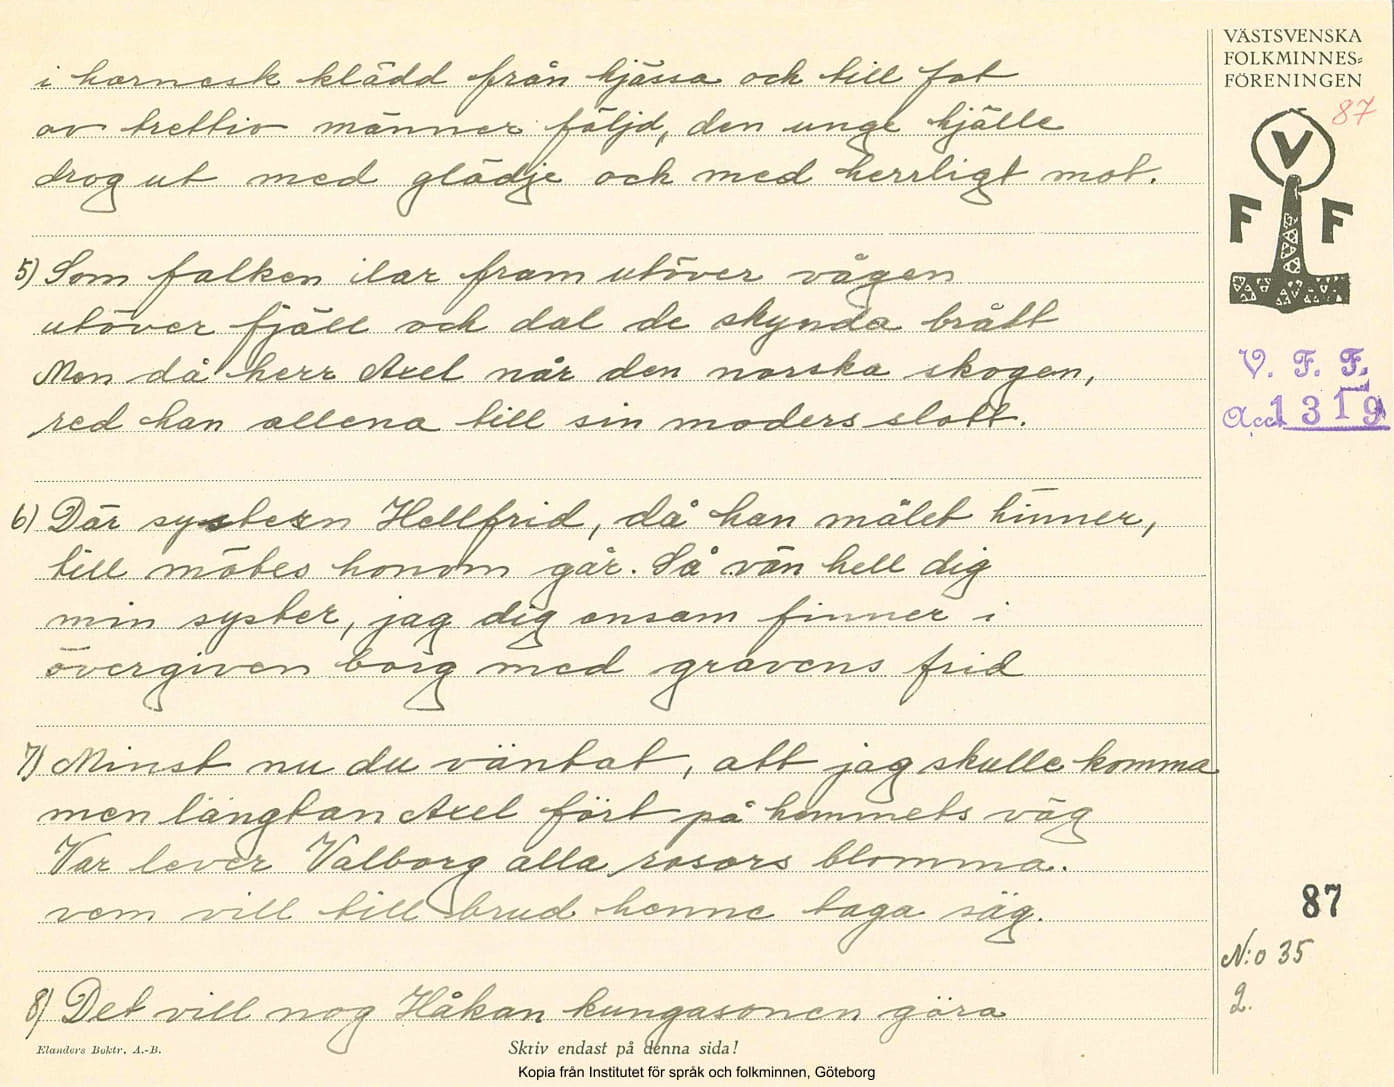 i harnesk klädd från hjässa och till fot
av trettio männer följd, den unge hjälle
drog ut med glädje och med herrligt mot.
5) Som falken ilar fram utöver vågen
utöver fjäll och dal de skynda brått
Men då herr Axel når den norska skogen,
red han allena till sin moders slott.
6) Där systern Hellfrid, då han målet hinner,
till mötes honom går. Så vän hell dig
min syster, jag dig ensam finner i
övergiven borg med gravens frid
7) Minst nu du väntat, att jag skulle komma
men längtan Axel fört på hemmets väg
Var lever Valborg alla rosors blomma.
vem vill till brud henne taga säg.
8) Det vill nog Håkan kungasonen göra
Elanders Boktr. A.-B.
Skriv endast på denna sida!
Kopia från Institutet för språk och folkminnen, Göteborg
VÄSTSVENSKA
FOLKMINNES=
FÖRENINGEN
87
V
F F
V. F. F.
Acc. 1319
87
N:o 35
2.